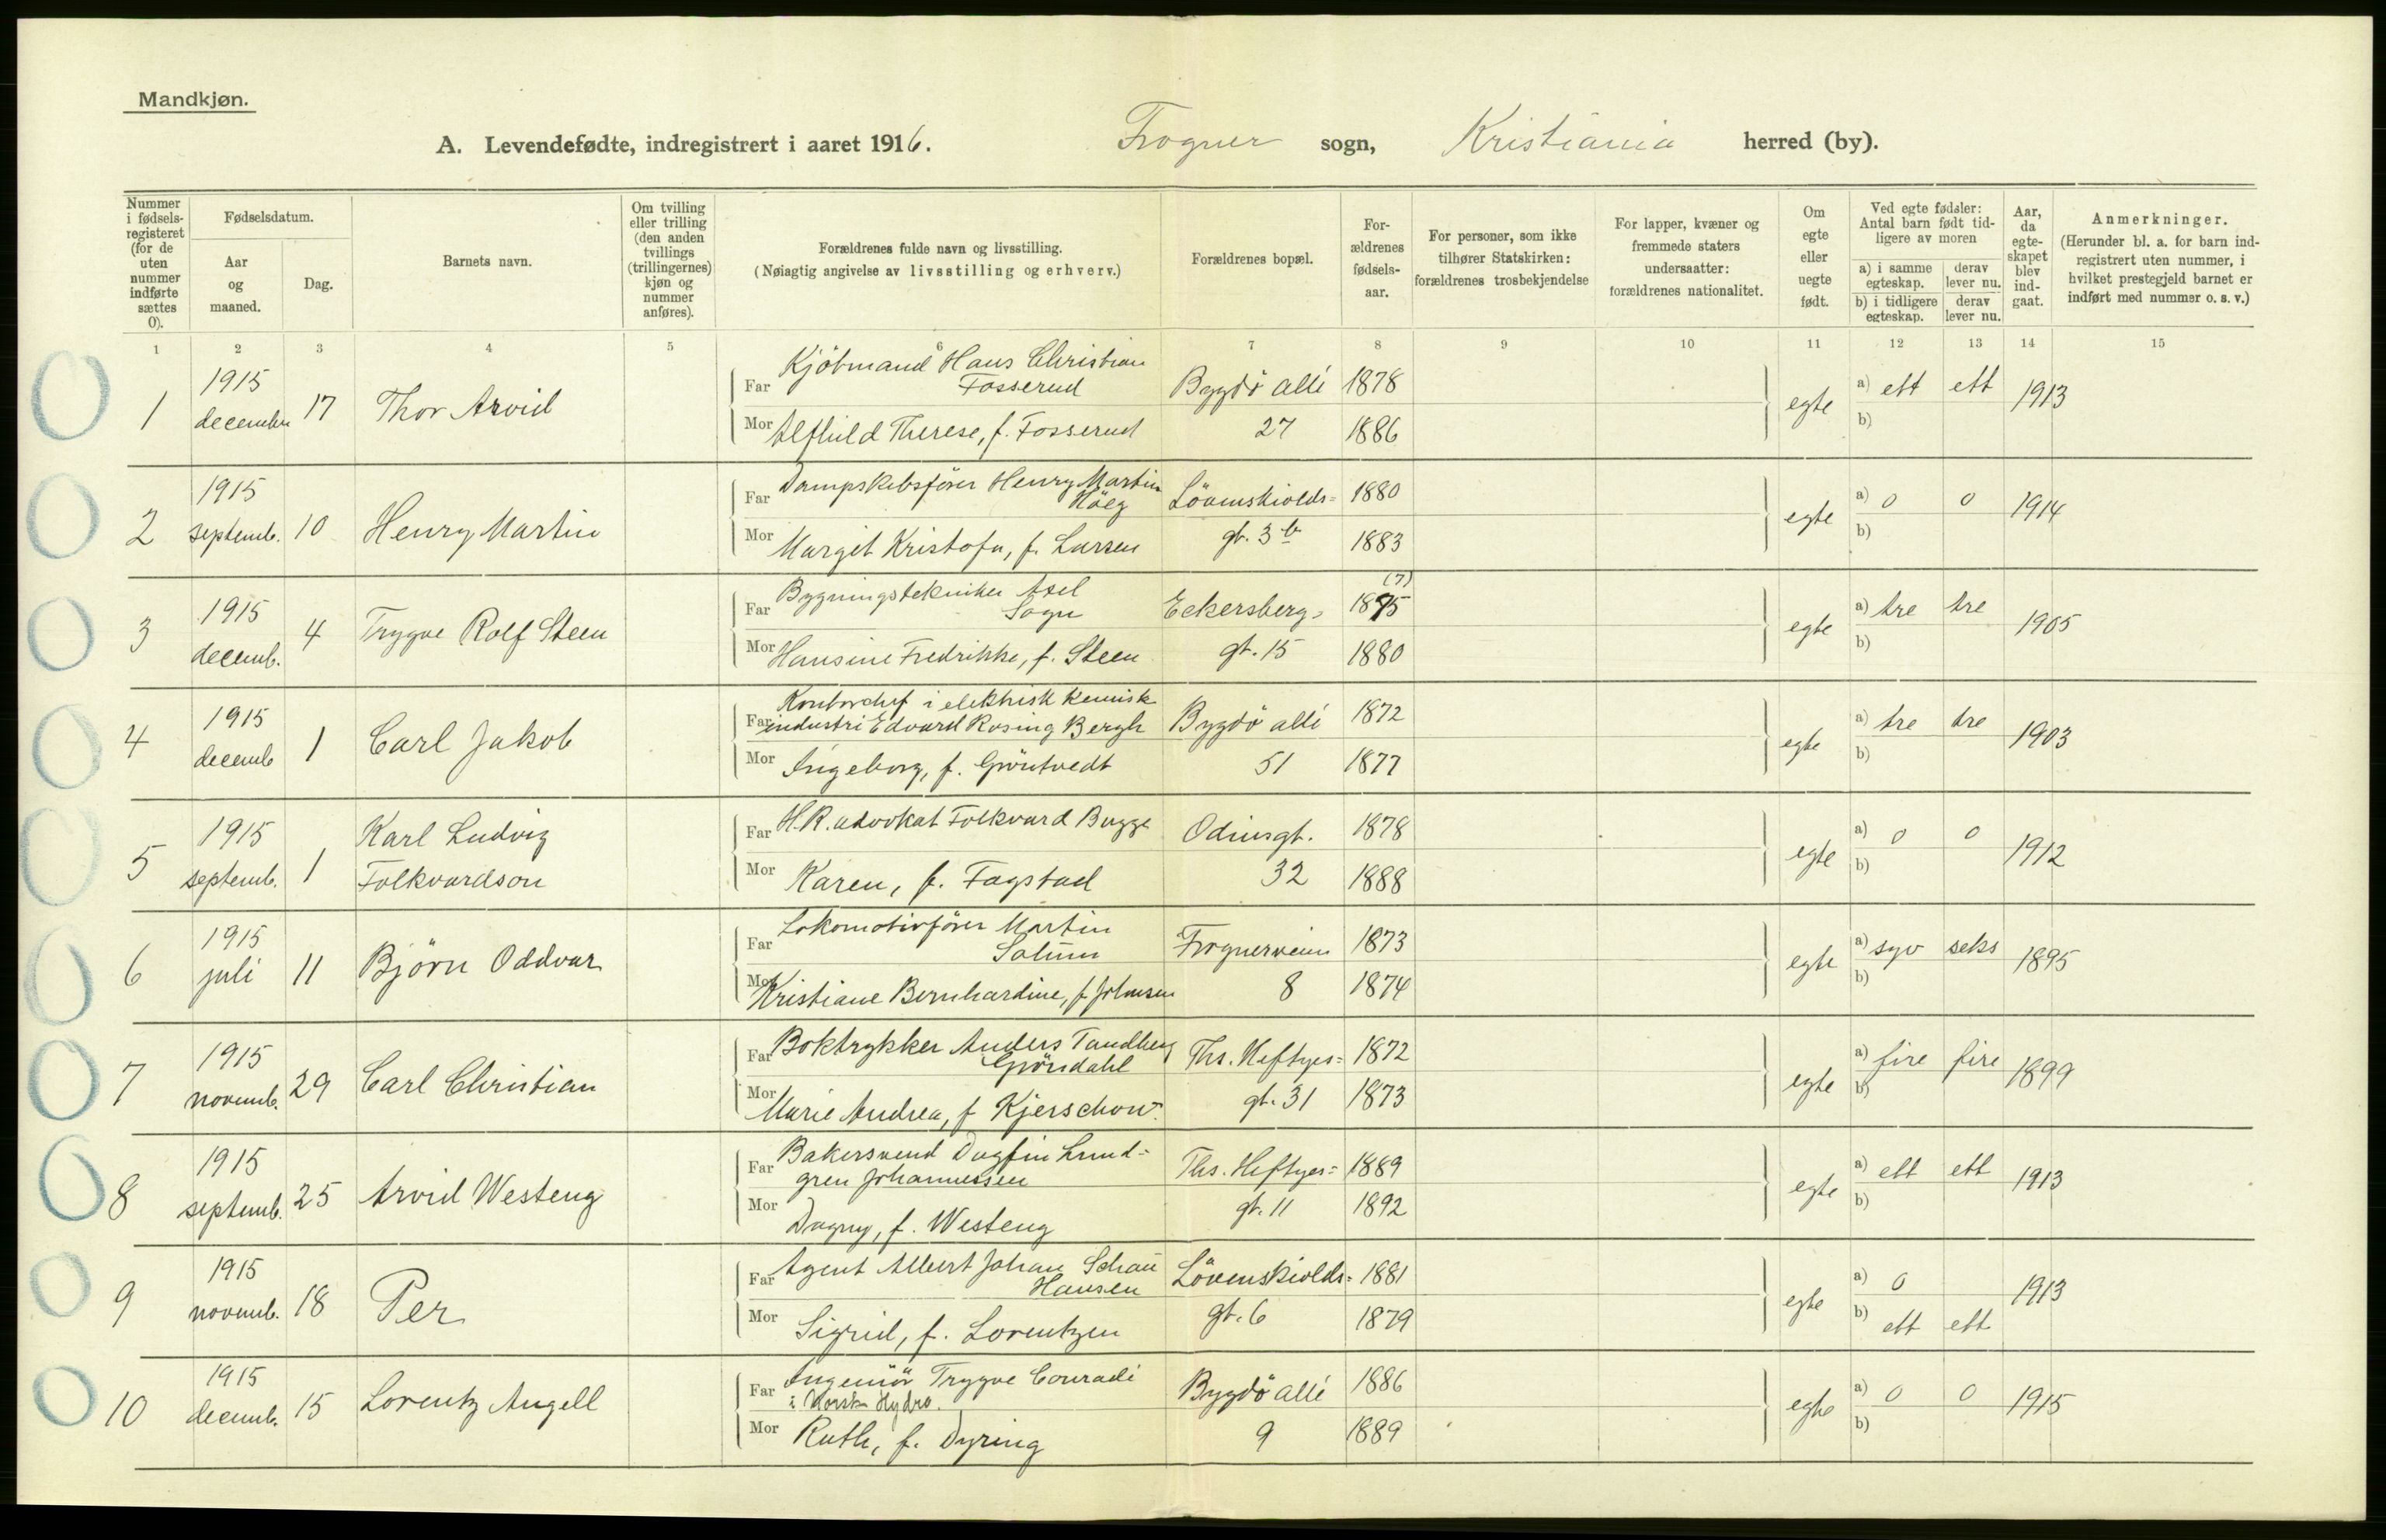 Mandkjøn.
A. Levendefødte, indregistrert i aaret 1916. Frogner sogn, Kristiania herred (by).
Nummer i fødsels-registeret (for de uten nummer indførte sættes 0).
Fødselsdatum.
Aar og maaned.
Dag.
Barnets navn.
Om tvilling eller trilling (den anden tvillings (trillingernes) kjøn og nummer anføres).
Forældrenes fulde navn og livsstilling.
(Nøiagtig angivelse av livsstilling og erhverv.)
Forældrenes bopæl.
For-ældrenes fødsels-aar.
For personer, som ikke tilhører Statskirken: forældrenes trosbekjendelse
For lapper, kvæner og fremmede staters undersaatter: forældrenes nationalitet.
Om egte eller uegte født.
Ved egte fødsler: Antal barn født tid-ligere av moren
a) i samme egteskap.
derav lever nu.
b) i tidligere egteskap.
derav lever nu.
Aar, da egte-skapet blev ind-gaat.
Anmerkninger.
(Herunder bl. a. for barn ind-registrert uten nummer, i hvilket prestegjeld barnet er indført med nummer o. s. v.)
1 2 3 4 5 6 7 8 9 10 11 12 13 14 15
1 1915 december 17 Thor Arvid
Far Kjöbmand Hans Christian Fosserud Bygdö allé 1878
Mor Alfhild Therese, f. Fosserud 27 1886
egte a) ett ett b) 1913
2 1915 septemb. 10 Henry Martin
Far Dampskibsfører Henry Martin Höeg Lövenskiolds= 1880
Mor Margit Kristofa, f. Larsen gt. 3 b 1883
egte a) 0 0 b) 1914
3 1915 decemb. 4 Trygve Rolf Steen
Far Bygningstekniker Axel Sogn Eckersberg= 1875 (7)
Mor Hansine Fredrikke, f. Steen gt. 15 1880
egte a) tre tre b) 1905
4 1915 decemb 1 Carl Jakob
Far Kontorchef i elektrisk kemisk industri Edvard Rosing Bergh Bygdö allé 1872
Mor Ingeborg, f. Gröntvedt 51 1877
egte a) tre tre b) 1903
5 1915 septemb. 1 Karl Ludvig Folkvardson
Far H.R. advokat Folkvard Bugge Odinsgt. 1878
Mor Karen, f. Fagstad 32 1888
egte a) 0 0 b) 1912
6 1915 juli 11 Björn Oddvar
Far Lokomotivfører Martin Solum Frognerveien 1873
Mor Kristiane Bernhardine, f. Johnsen 8 1874
egte a) syv seks b) 1895
7 1915 novemb. 29 Carl Christian
Far Boktrykker Anders Tandberg Gröndahl Ths. Heftyes= 1872
Mor Marie Andrea, f Kjerschow. gt. 31 1873
egte a) fire fire b) 1899
8 1915 septemb. 25 Arvid Westeng
Far Bakersvend Dagfin Lund=gren Johannessen Ths. Heftyes= 1889
Mor Dagny, f. Westeng gt. 11 1892
egte a) ett ett b) 1913
9 1915 novemb. 18 Per
Far Agent Albert Johan Schau Hansen Lövenskiolds= 1881
Mor Sigrid, f. Lorentzen gt. 6 1879
egte a) 0 b) ett ett 1913
10 1915 decemb. 15 Lorentz Angell
Far Ingeniör Trygve Conradi i Norsk Hydro. Bygdö allé 1886
Mor Ruth, f. Dyring 9 1889
egte a) 0 0 b) 1915